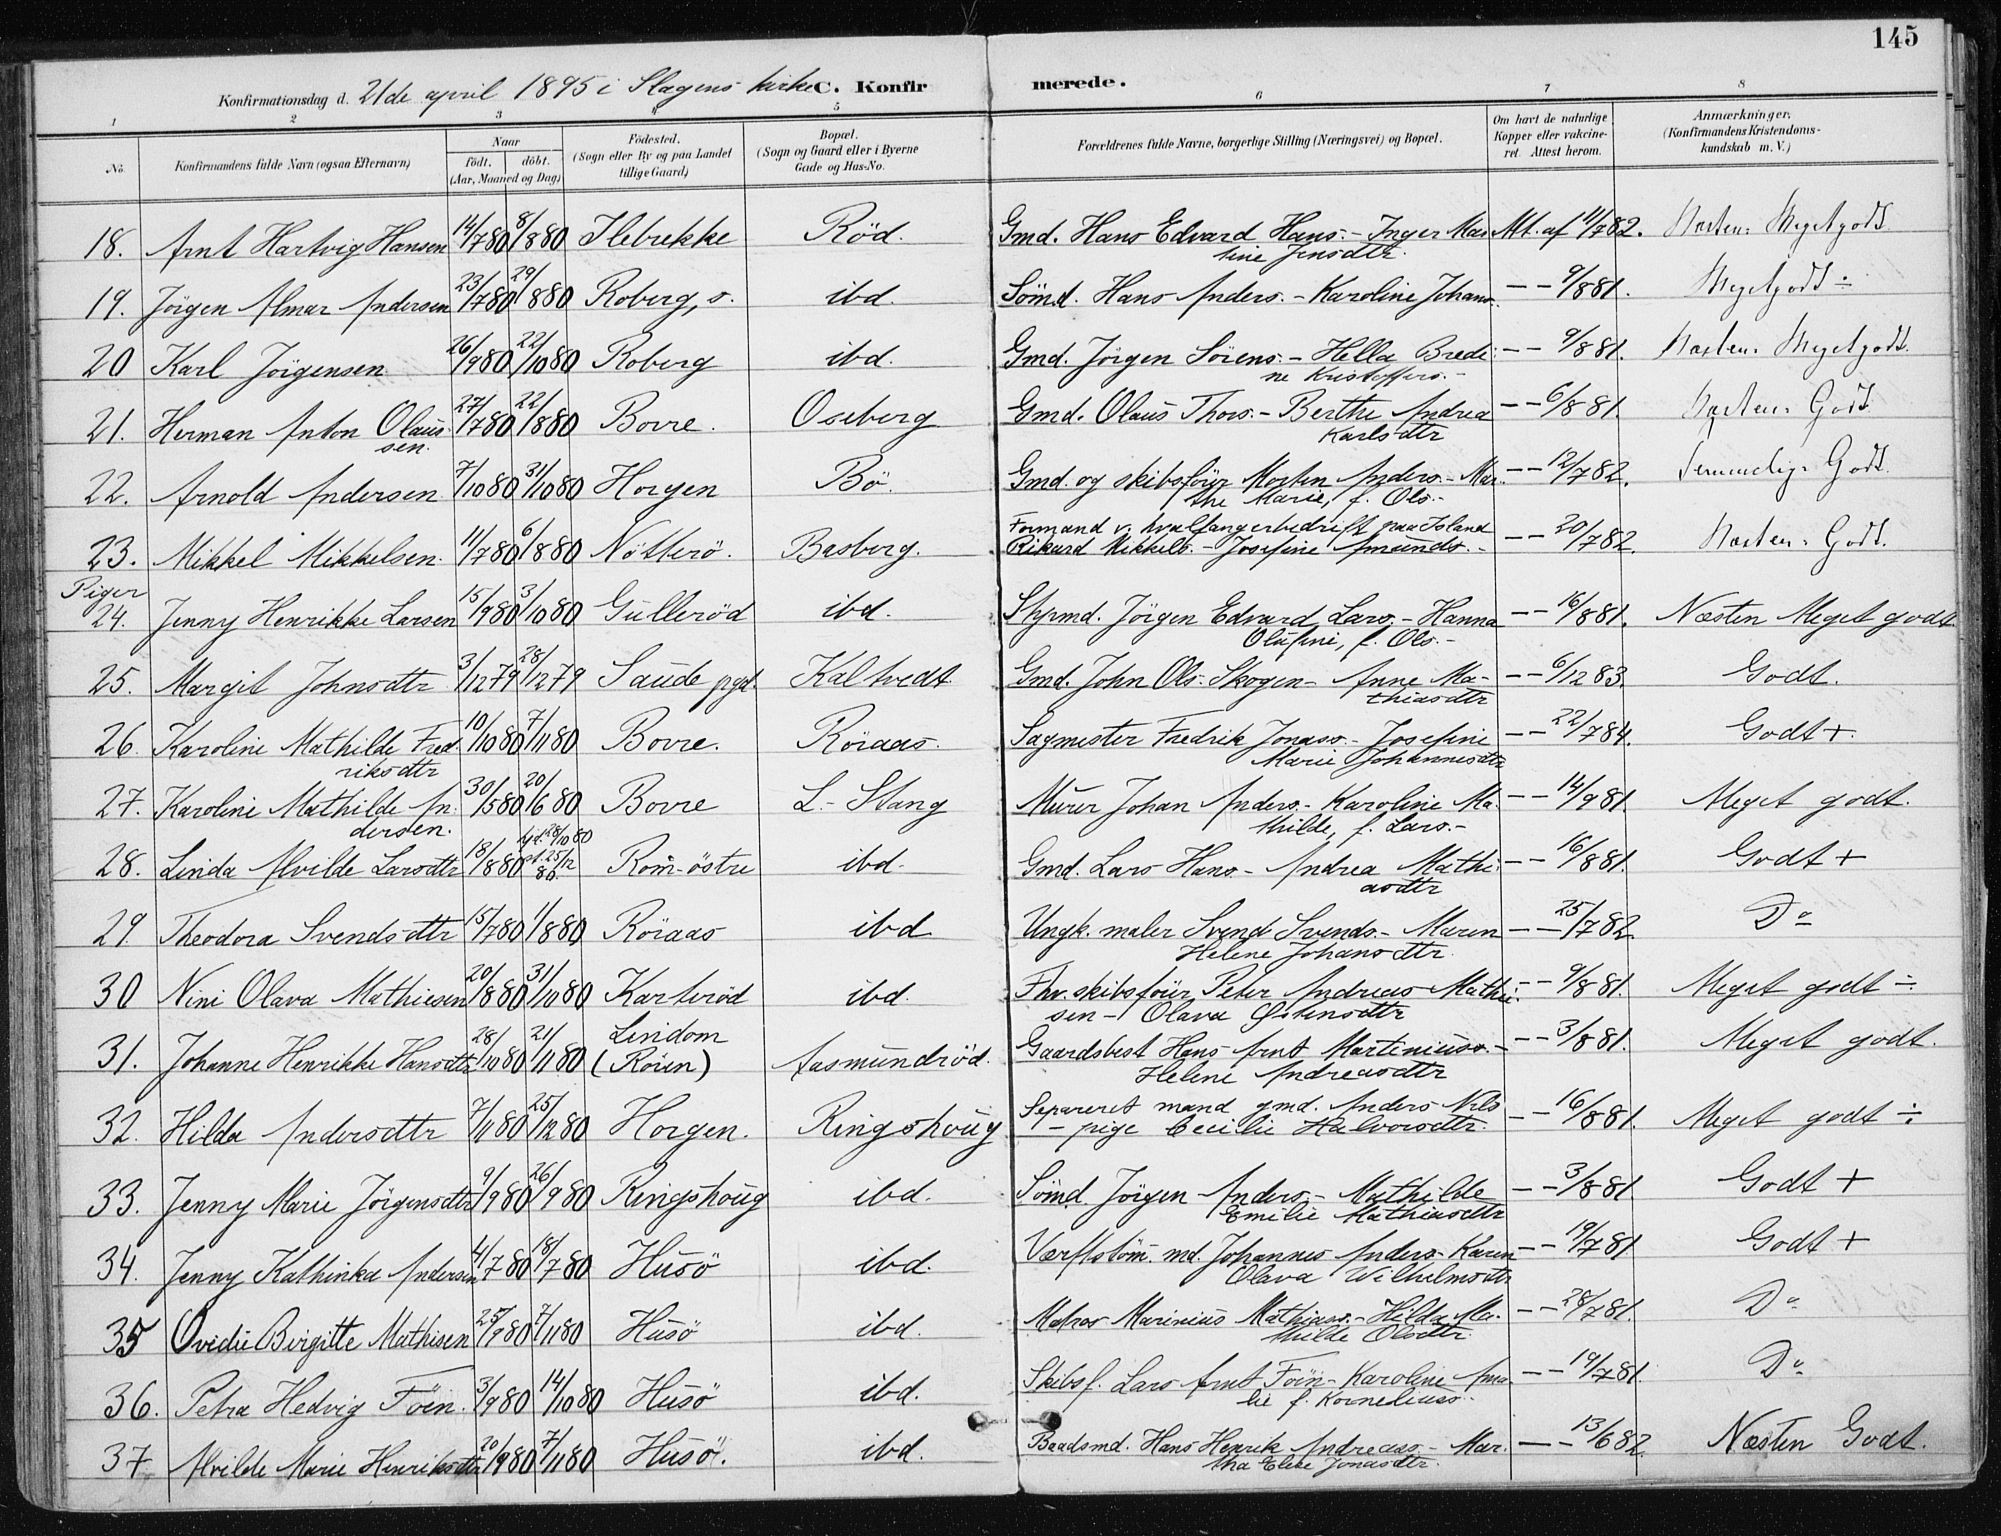 145
Konfirmationsdag d. 21de april 1895 i Slagens kirke C. Konfirmerede.
1 2 3 4 5 6 7 8
No. Konfirmandens fulde Navn (ogsaa Efternavn) Naar født. døbt. (Aar, Maaned og Dag) Fødested. (Sogn eller By og paa Landet tillige Gaard) Bopæl. (Sogn og Gaard eller i Byerne Gade og Hus-No. Forældrenes fulde Navne, borgerlige Stilling (Næringsvei) og Bopæl. Om havt de naturlige Kopper eller vakcineret. Attest herom. Anmærkninger. (Konfirmandens Kristendomskundskab m. V.)
18. Arnt Hartvig Hansen 14/7 80 8/8 80 Ilebrekke Röd. Gmd. Hans Edvard Hans. - Inger Mar- Att. af 11/7 82. Næsten Megetgodt
tine Jensdtr.
19. Jörgen Almar Andersen 23/7 80 29/8 80 Roberg, s. ibd. Sömd. Hans Anders. - Karoline Johans. - - 9/8 81. Megetgodt ÷
20 Karl Jörgensen 26/9 80 22/10 80 Roberg ibd. Gmd. Jörgen Sörens. - Hella Brede- - - 9/8 81. Næsten Megetgodt.
ne Kristoffers. -
21. Herman Anton Olaus- 27/7 80 22/8 80 Borre. Oseberg Gmd. Olaus Thors. - Berthe Andrea - - 6/8 81. Næsten Godt
sen. Karlsdtr
22. Arnold Andersen 7/10 80 31/10 80 Horgen Bö. Gmd. og skibsförer Morten Anders. - Mar- - - 12/7 82. Temmelig Godt.
the Marie, f. Ols. -
23. Mikkel Mikkelsen. 11/7 80 6/8 80 Nötterö. Basberg. Formand v. hvalfangerbedrift paa Island - - 20/7 82. Næsten Godt.
Rikard Mikkels. - Josefine Amunds. -
Piger
24. Jenny Henrikke Larsen 15/9 80 3/10 80 Gulleröd ibd. Styrmd. Jörgen Edvard Lars. - Hanna - - 16/8 81. Næsten Meget godt
Olufine, f. Ols. -
25. Margit Johnsdtr 3/12 79 28/12 79 Saude pgd. Kaltvedt Gmd. John Ols. Skogen - Anne Ma- - - 6/12 83. Godt.
thiasdtr
26. Karoline Mathilde Fred- 10/10 80 7/11 80 Borre. Röraas. Sagmester Fredrik Jonass. - Josefine - - 22/7 84. Godt +.
riksdtr Marie Johannesdtr
27. Karoline Mathilde An- 30/5 80 20/6 80 Borre L.- Stang Murer Johan Anders. - Karoline Ma- - - 14/9 81. Meget godt.
dersen. thilde, f. Lars. -
28. Linda Alvilde Larsdtr 18/8 80 28/10 80 25/12 80. Rom-östre ibd. Gmd. Lars Hans. - Andrea Mathi- - - 16/8 81. Godt +
asdtr
29. Theodora Svendsdtr 15/7 80 1/8 80 Röraas ibd Ungk. maler Svend Svends. - Maren - - 25/7 82. Do
Helene Johansdtr.
30 Nini Olava Mathiesen 20/8 80 31/10 80 Karleröd ibd. Fhv. skibsförer Peter Andreas Mathi- - 9/8 81. Meget godt ÷
sen - Olava Østensdtr
31. Johanne Henrikke Hansdtr 28/10 80 21/11 80 Lindom (Röien) Aasmundröd. Gaardsbest Hans Arnt Martiniuss. - - 3/8 81. Meget godt.
Helene Andreasdtr
32. Hilda Andersdtr 7/11 80 25/12 80 Horgen. Ringshoug Separeret mand gmd. Anders Nils - - 16/8 81. Meget godt ÷
- pige Cecilie Halvorsdtr.
33. Jenny Marie Jörgensdtr 9/9 80 26/9 80 Ringshoug ibd. Sömd Jörgen Anders. - Mathilde - - 3/8 81 Godt +
Emilie Mathiasdtr
34. Jenny Kathinka Andersen 4/7 80 18/7 80 Husö ibd. Værftstöm. md. Johannes Anders. Karen - - 19/7 81 Godt +
Olava Wilhelmsdtr
35 Ovedie Birgitte Mathisen 25/9 80 7/11 80 Husö ibd. Matros Marinius Mathias. - Hilda Ma- - - 28/7 81. Do
thilde Olsdtr.
36. Petra Hedvig Föien. 3/9 80 14/10 80 Husö ibd. Skibsf. Lars Arnt Föin - Karoline Ama- - - 19/7 81. Do
lie f. Korneliuss. -
37 Alvilde Marie Henriksdtr 20/9 80 7/11 80 Husö. ibd. Baadsmd. Hans Henrik Andreas. - Mar- - - 13/6 82 Næsten Godt.
tha Elise Jonasdtr.